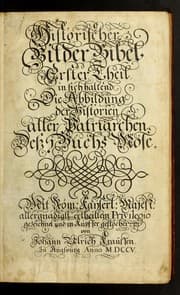 Historischer
Bilder Bibel
Erster Theil
in sich haltend
Die Abbildung
der Historien
aller Patriarchen
Deß 1 Buchs Mose.
Mit Röm: Kaÿserl: Maÿest:
allergnädigst ertheiltem Privilegio
gezeichnet und in Kupffer gestochen
von
Johann Ulrich Kraussen
In Augspurg Anno MDCCV.